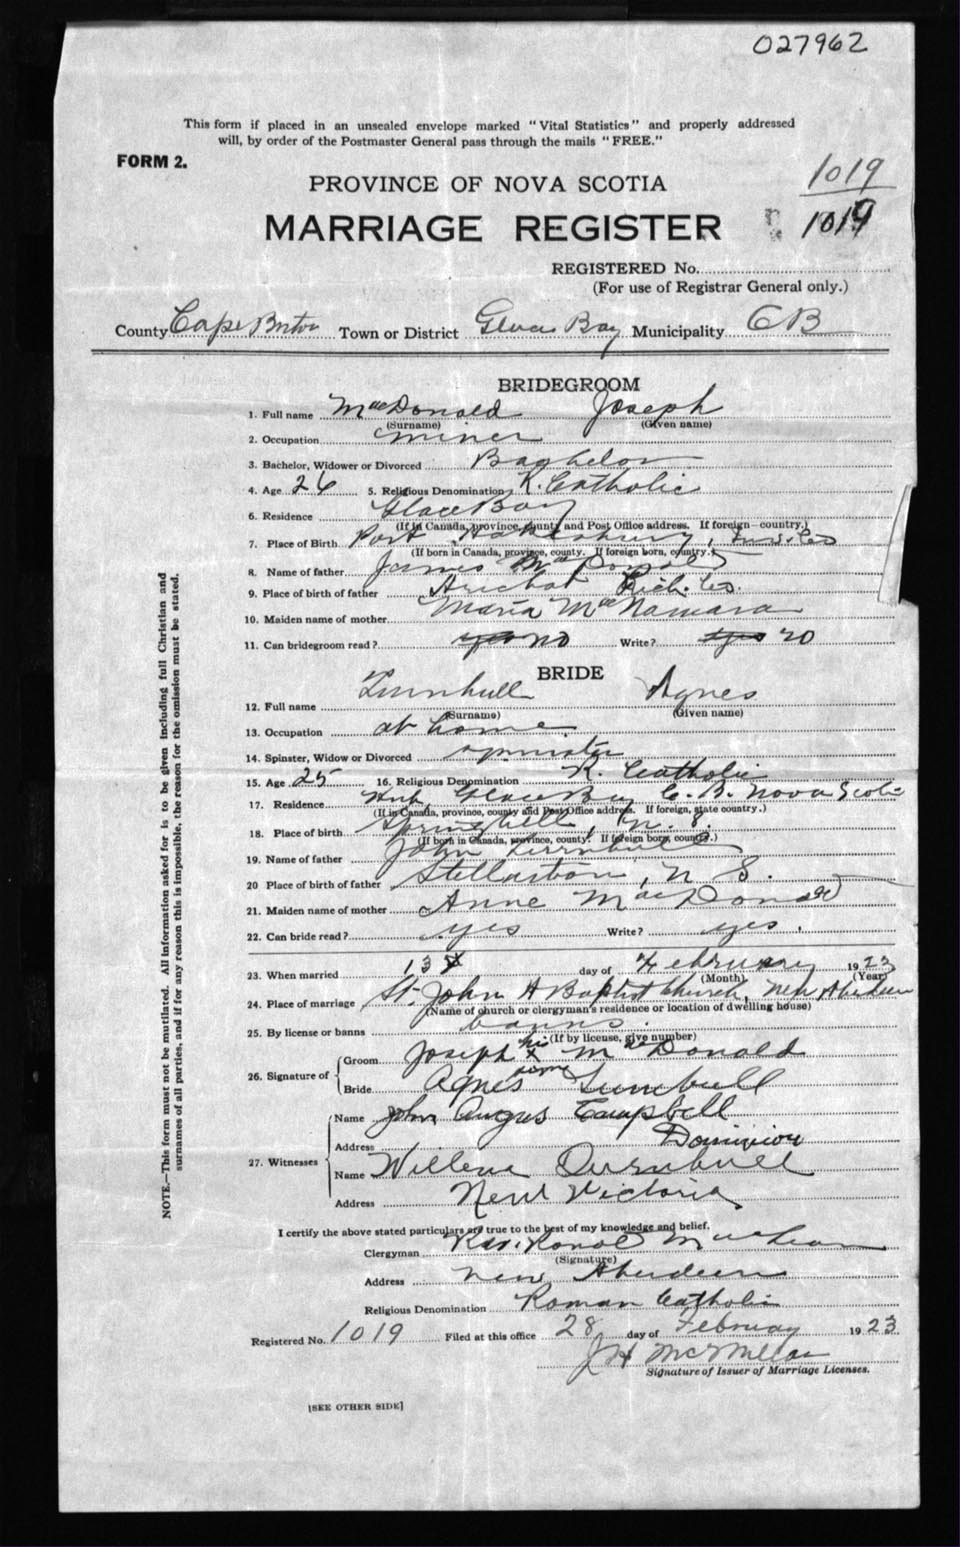 027962
This form if placed in an unsealed envelope marked "Vital Statistics" and properly addressed
will, by order of the Postmaster General pass through the mails "FREE."
FORM 2.
1019
PROVINCE OF NOVA SCOTIA
MARRIAGE REGISTER
1019
REGISTERED No.
(For use of Registrar General only.)
County Cape Breton Town or District Glace Bay Municipality CB
BRIDEGROOM
1. Full name MacDonald Joseph
(Surname) (Given name)
2. Occupation miner
3. Bachelor, Widower or Divorced Baghelor
4. Age 26 5. Religious Denomination R. Catholic
6. Residence Glace Bay
(If in Canada, province, county and Post Office address. If foreign—country.)
7. Place of Birth Port Hawkesbury,
(If born in Canada, province, county. If foreign born, country.)
8. Name of father James MacDonald
9. Place of birth of father Arichat Rich. Co
10. Maiden name of mother Maria MacNamara
11. Can bridegroom read? yes no Write? yes no
BRIDE
12. Full name Turnbull Agnes
(Surname) (Given name)
13. Occupation at home
14. Spinster, Widow or Divorced spinster
15. Age 25 16. Religious Denomination R. Catholic
17. Residence Hub, Glace Bay C. B. Nova Scotia
(If in Canada, province, county and Post Office address. If foreign, state country.)
18. Place of birth Springhill, N. S.
(If born in Canada, province, county. If foreign born, country.)
19. Name of father John Turnbull
20 Place of birth of father Stellarton, N S.
21. Maiden name of mother Anne MacDonald
22. Can bride read? yes Write? yes.
23. When married 13 day of February 1923
(Month) (Year)
24. Place of marriage St. John A Baptist Church, New Aberdeen
(Name of church or clergyman's residence or location of dwelling house)
25. By license or banns banns.
(If by license, give number)
26. Signature of Groom Joseph his x MacDonald
Bride Agnes Turnbull
27. Witnesses Name John Angus Campbell
Address Dominion
Name Willena Turnbull
Address New Victoria
I certify the above stated particulars are true to the best of my knowledge and belief.
Clergyman Rev. Ronald MacLean
(Signature)
Address New Aberdeen
Religious Denomination Roman Catholic
Registered No. 1019 Filed at this office 28 day of February 1923
J H McMillan
Signature of Issuer of Marriage Licenses.
[SEE OTHER SIDE]
NOTE.—This form must not be mutilated. All information asked for is to be given including full Christian and
surnames of all parties, and if for any reason this is impossible, the reason for the omission must be stated.